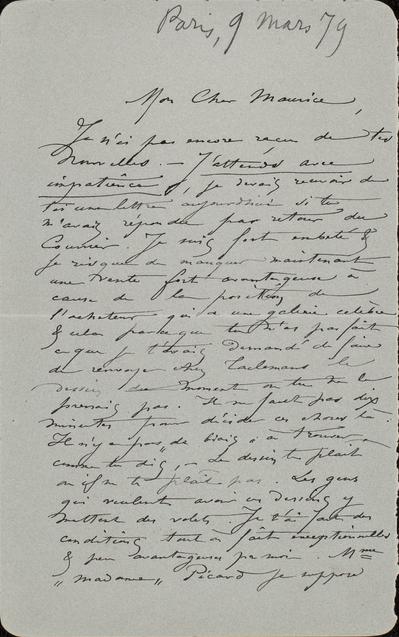 Paris, 9 Mars 79
Mon Cher Maurice,
Je n'ai pas encore reçu de tes
nouvelles. — J'attends avec
impatience, je devais recevoir de
toi une lettre aujourd'hui si tu
m'avais répondu par retour du
Courrier. Je suis fort embêté &
je risque de manquer maintenant
une vente fort avantageuse à
cause de la position de
l'acheteur qui a une galerie célèbre
& cela parce que tu n'as pas fait
ce que je t'avais demandé de faire
de renvoyer chez Taelemans le
dessin du moment où tu ne le
prenais pas. Il ne faut pas dix
minutes pour décider ces choses là.
Il n'y a pas "de biais à trouver"
comme tu dis, — Le dessin te plaît
ou il ne te plaît pas. Les gens
qui veulent avoir ces dessins y
mettent des volets. Je t'ai fait des
conditions tout à fait exceptionnelles
& peu avantageuses pr moi. Mme
"madame" Picard je suppose